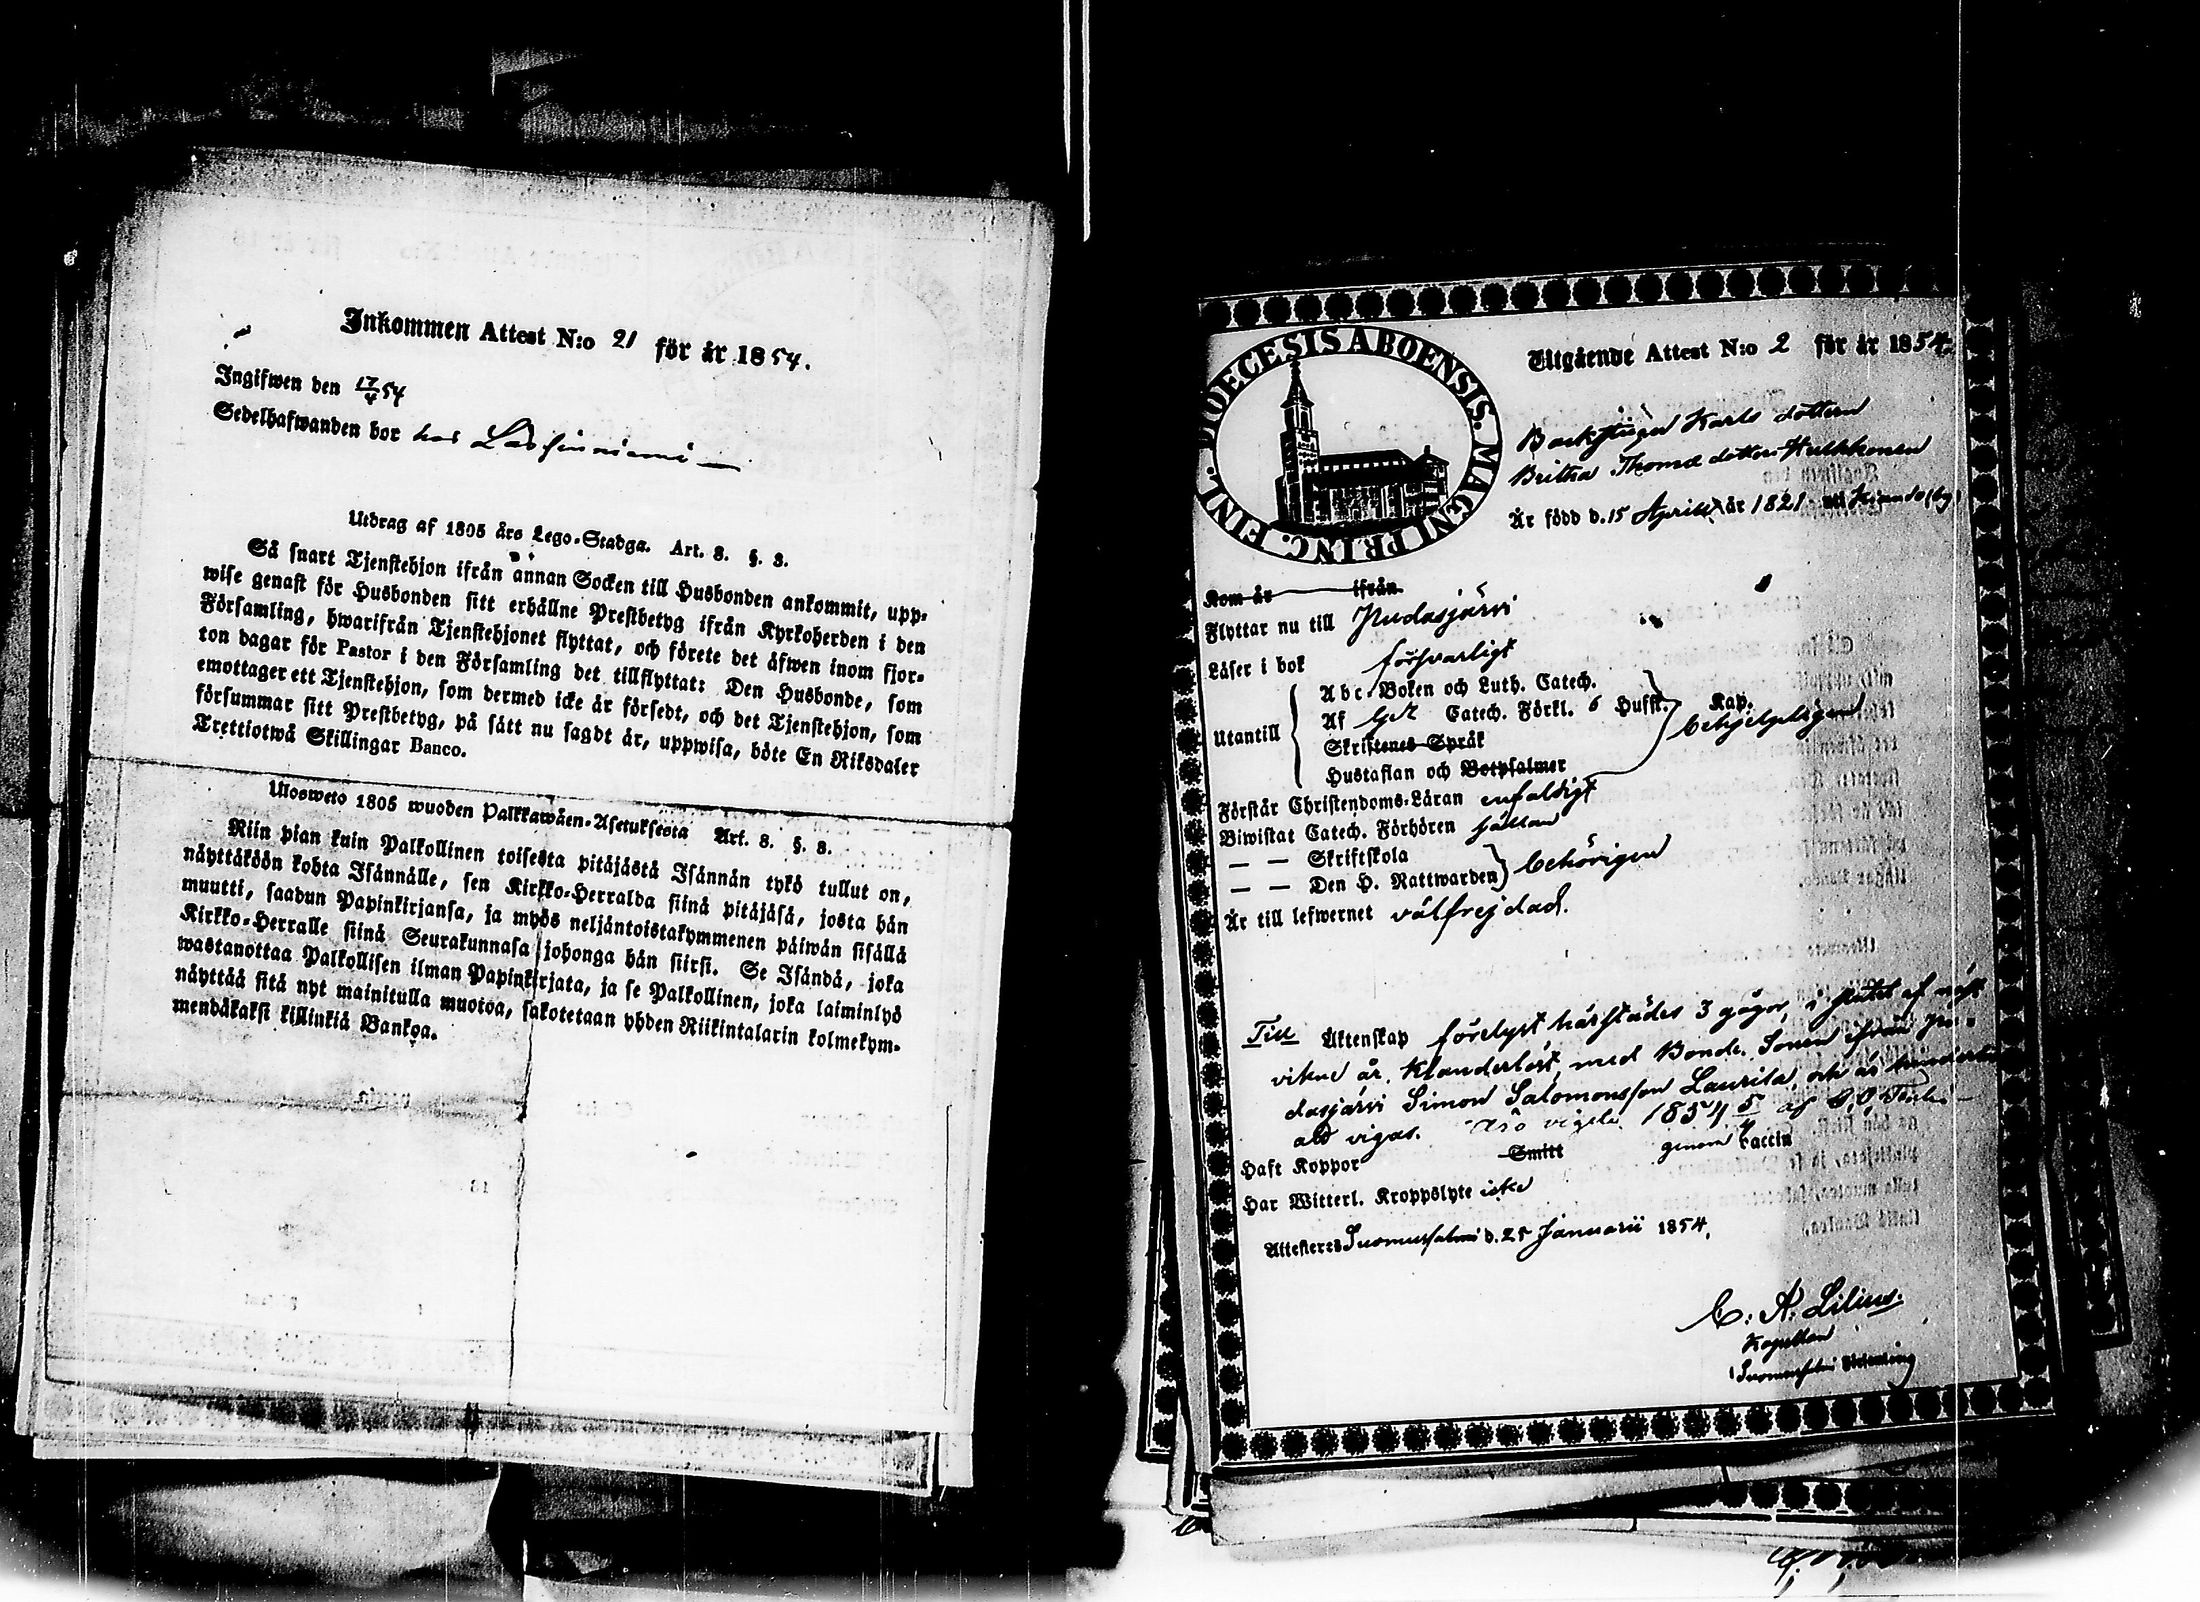 Inkommen Attest N:o 21 för år 1854.
Ingifwen den 17/4 54
Sedelhafwanden bor hos
Utdrag af 1805 års Lego-Stadga. Art. 8. §. 3.
Så snart Tjenstehjon ifrån annan Socken till Husbonden ankommit, upp-
wise genast för Husbonden sitt erhållne Prestbetyg ifrån Kyrkoherden i den
Församling, hwarifrån Tjenstehjonet flyttat, och förete det äfwen inom fjor-
ton dagar för Pastor i den Församling det tillflyttat: Den Husbonde, som
emottager ett Tjenstehjon, som dermed icke är försedt, och det Tjenstehjon, som
försummar sitt Prestbetyg, på sätt nu sagdt är, uppwisa, böte En Riksdaler
Trettiotwå Skillingar Banco.
Ulosweto 1805 wuoden Palkkawäen-Asetuksesta Art. 8. §. 3.
Niin pian kuin Palkollinen toisesta pitäjästä Isännän tykö tullut on,
näyttäköön kohta Isännälle, sen Kirkko-Herralda siinä pitäjäsä, josta hän
muutti, saadun Papinkirjansa, ja myös neljäntoistakymmenen päiwän sisällä
Kirkko-Herralle siinä Seurakunnasa johonga hän siirsi. Se Isändä, joka
wastanottaa Palkollisen ilman Papinkirjata, ja se Palkollinen, joka laiminlyö
näyttää sitä nyt mainitulla muotoa, sakotetaan yhden Riikintalarin kolmekym-
mendäkaksi killinkiä Bankoa.
DIOECESIS ABOENSIS. MAGNI PRINC. FINL.
Utgående Attest N:o 2 för år 1854.
Backstugu Karls dottern
Britha Thomæ dotter Hulkkonen
Är född d. 15 Aprill år 1821 uti Kiando by
Kom år ifrån
Flyttar nu till Pudasjärvi
Läser i bok försvarligt
Utantill
Abc-Boken och Luth. Catech.
Af Catech. Förkl. 6 Hufst. Kap.
Skriftenes Språk
Hustaflan och Botpsalmer
behjelpligen
Förstår Christendoms-Läran enfaldigt
Biwistat Catech. Förhören sällan
— — Skriftskola
— — Den H. Nattwarden
behörigen
Är till lefwernet välfrejdad.
Till Äktenskap förelyst härstädes 3 gågor, i slutet af näst
vikne år, klanderlöst, med Bonde Sonen ifrån Pu-
dasjärvi Simon Salomonsson Laurila, och är hinderlös
att vigas. 1854 5/4 af
Haft Koppor Smitt genom Vaccin
Har Witterl. Kroppslyte icke
Attesteres Suomussalmi d. 25 Januarii 1854.
C. A. Lilius.
Kapellan